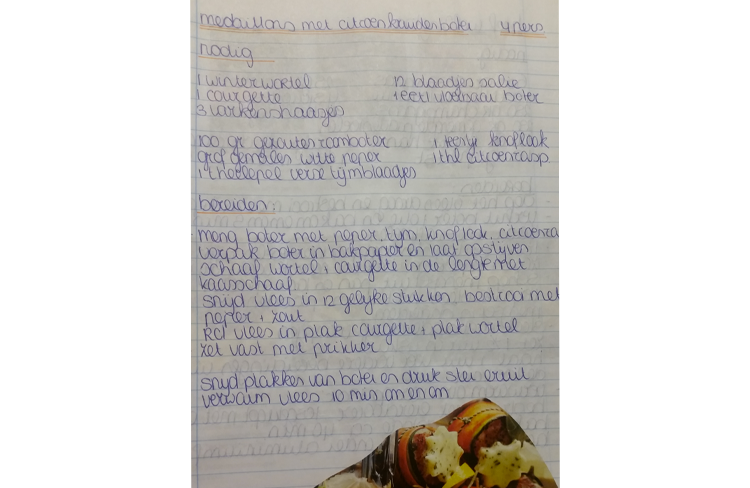 medaillons met citroenkruidenboter 4 pers
nodig
1 winterwortel 12 blaadjes salie
1 courgette 1 eetl vloeibaar boter
3 varkenshaasjes
100 gr gezouten roomboter 1 teentje knoflook
grof gemalen witte peper 1 thl citroenrasp
1 theelepel verse tijmblaadjes
bereiden:
meng boter met peper, tijm, knoflook, citoenra
verpak boter in bakpapier en laat opstijven
schaaf wortel + courgette in de lengte met
kaasschaaf.
snijd vlees in 12 gelijke stukken bestrooi met
peper + zout
Rol vlees in plak courgette + plak wortel
zet vast met prikker
snijd plakken van boter en druk ster eruit
verwarm vlees 10 min om en om